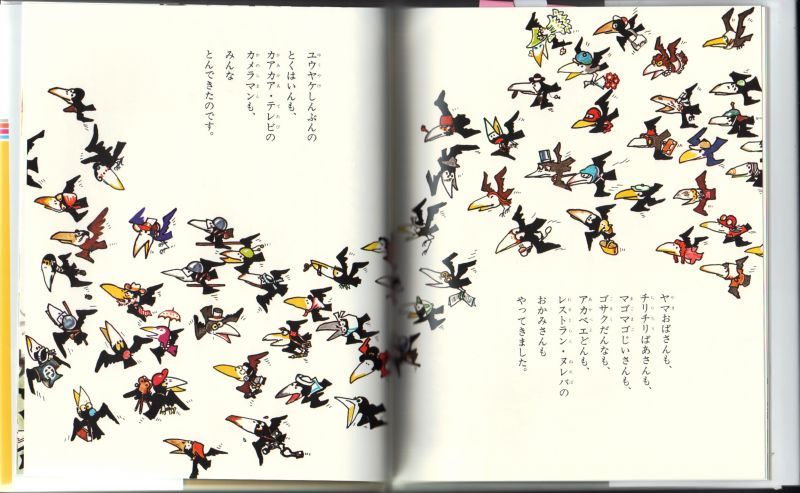 ヤマおばさんも、
チリチリばあさんも、
マゴマゴじいさんも、
ゴサクだんなも、
アカベエどんも、
レストラン・ヌレバの
おかみさんも
やってきました。
ユウヤケしんぶんの
とくはいんも、
カアカア・テレビの
カメラマンも、
みんな
とんできたのです。